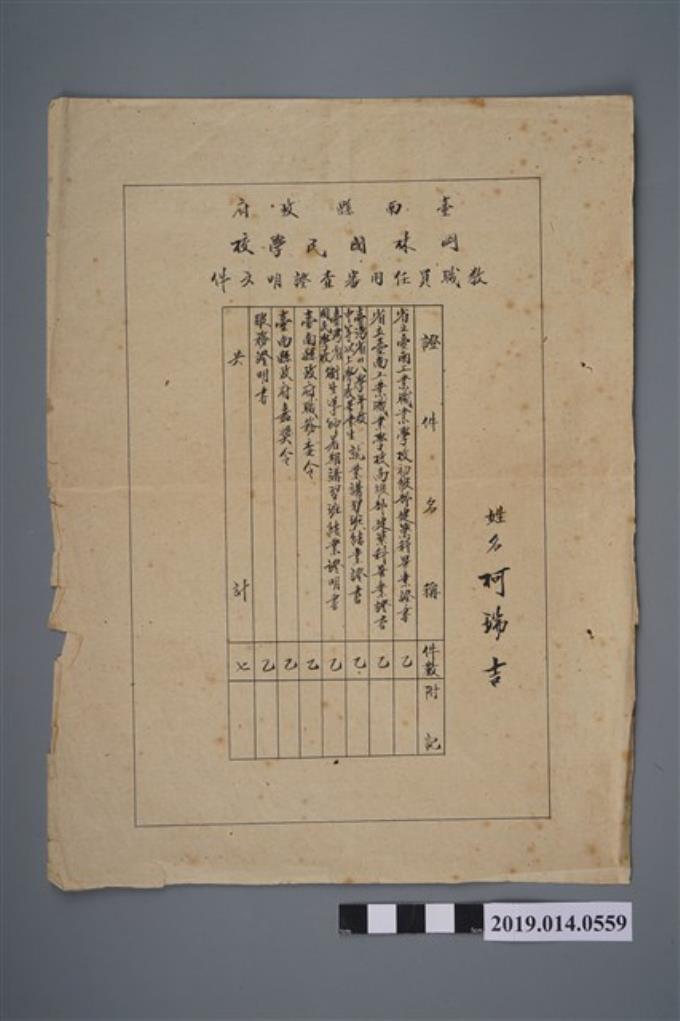 臺南縣政府
岡林國民學校
教職員任用審查證明文件
姓名 柯瑞吉
證件名稱 件數 附記
省立臺南工業職業學校初級部建築科畢業證書 乙
省立臺南工業職業學校高級部建築科畢業證書 乙
臺灣省卅八學年度中等以上學校畢業生就業講習班結業證書 乙
臺灣省國民學校衛生導師暑期講習班結業證明書 乙
臺南縣政府職務查令 乙
臺南縣政府嘉獎令 乙
職務證明書 乙
共計 七
2019.014.0559